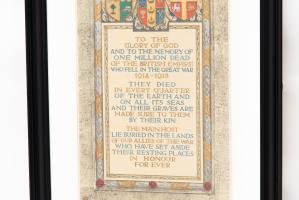 TO THE
GLORY OF GOD
AND TO THE MEMORY OF
ONE MILLION DEAD
OF THE BRITISH EMPIRE
WHO FELL IN THE GREAT WAR
1914-1918
THEY DIED
IN EVERY QUARTER
OF THE EARTH AND
ON ALL ITS SEAS
AND THEIR GRAVES ARE
MADE SURE TO THEM
BY THEIR KIN
THE MAIN HOST
LIE BURIED IN THE LANDS
OF OUR ALLIES OF THE WAR
WHO HAVE SET ASIDE
THEIR RESTING PLACES
IN HONOUR
FOR EVER